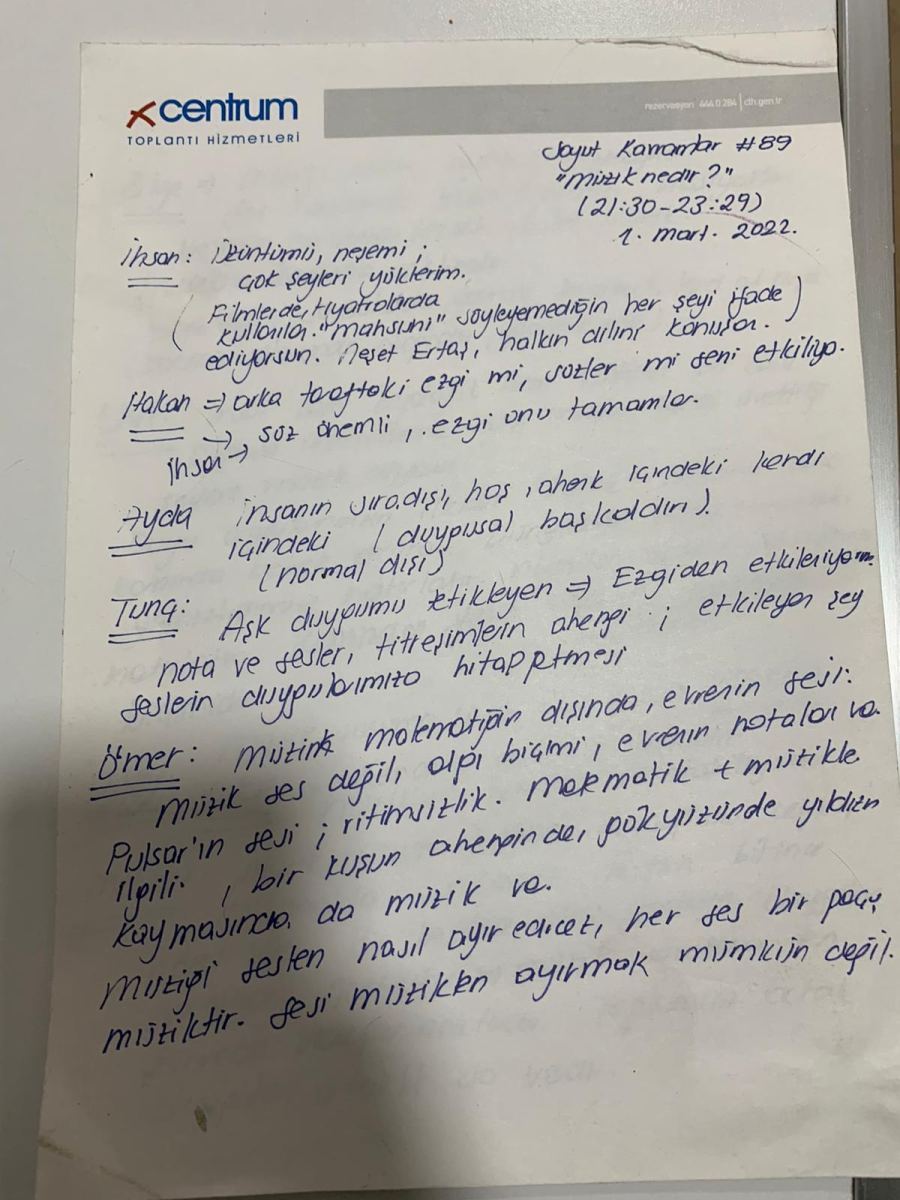 centrum
TOPLANTI HİZMETLERİ
rezervasyon 444 0 284 | cth.gen.tr
Soyut Kavramlar #89
"müzik nedir?"
(21:30-23:29)
1. mart. 2022.
İhsan: Üzüntümü, neşemi ;
çok şeyleri yüklerim.
( Filmlerde, tiyatrolarda
kullanılır. "mahsuni" söyleyemediğin her şeyi ifade )
ediyorsun. Neşet Ertaş, halkın dilini konuşur.
Hakan ⇒ arka taraftaki ezgi mi, sözler mi seni etkiliyo.
İhsan → söz önemli , ezgi onu tamamlar.
Ayda insanın sıradışı, hoş , ahenk içindeki kendi
içindeki (duygusal başkaldırı).
(normal dışı)
Tunç: Aşk duygumu tetikleyen ⇒ Ezgiden etkileniyorum.
nota ve sesler, titreşimlerin ahengi ; etkileyen şey
seslerin duygularımıza hitap etmesi
Ömer: müzik matematiğin dışında, evrenin sesi.
müzik ses değil, algı biçimi, evrenin notaları va.
Pulsar'ın sesi ; ritimsizlik. matematik + müzikle
ilgili. , bir kuşun ahenginde, gökyüzünde yıldızın
kaymasında da müzik va.
müziği sesten nasıl ayır edicez, her ses bir parça
müziktir. sesi müzikten ayırmak mümkün değil.